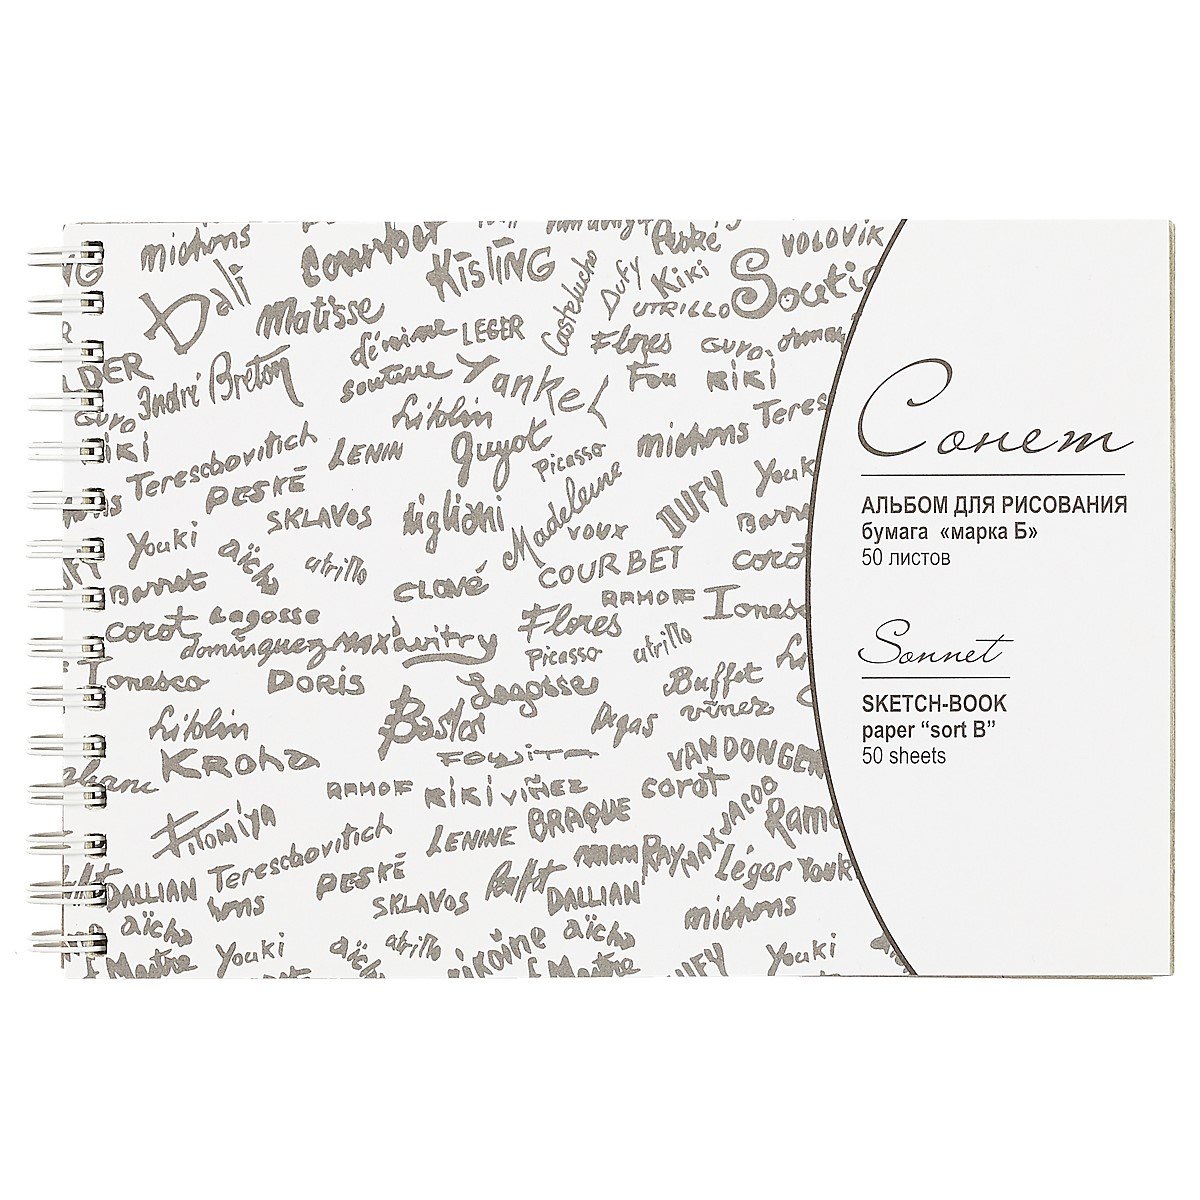 michons
Courbet
KISLING
Peské
VOLOVIK
Dali
Castelucho
Dufy
Kiki
Soutin
Matisse
UTRILLO
LEGER
Flores
GUYO
André Breton
soutine
Yankel
Fou
KIKI
GUYO
Guyot
michons
Teres
KIKI
Tereschovitch
LENIN
Picasso
Madeleine
DUFY
Youki
PESKÉ
SKLAVOS
VOUX
Youki
aïcha
utrillo
COURBET
corot
CLOVÉ
RAMOFF
Ionesco
Barret
corot
Lagosse
dominguez
MAX
Flores
utrillo
Picasso
Ionesco
DORIS
Lagosse
Buffet
vinez
Degas
Kroha
FOUJITA
VAN DONGEN
RAMOF
KIKI
viñez
corot
JACOB
Ramo
FITOMIYA
Tereschovitch
LENINE
BRAQUE
man RAY
MAX
Léger
YOUKI
PESKÉ
Buffet
DALLIAN
DALLIAN
SKLAVOS
michons
aïcha
aïcha
Youki
aïcha
utrillo
DUFY
Youki
Сонет
АЛЬБОМ ДЛЯ РИСОВАНИЯ
бумага «марка Б»
50 листов
Sonnet
SKETCH-BOOK
paper “sort B”
50 sheets